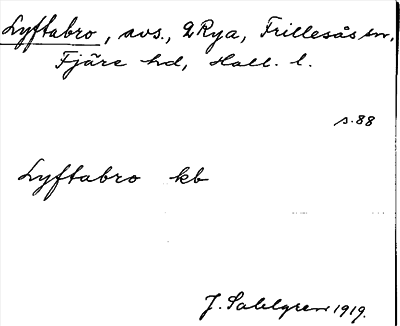 Lyftabro, avs., 2 Rya, Frillesås sn,
Fjäre hd, Hall. l.
s. 88
Lyftabro kb
J. Sahlgren 1919.